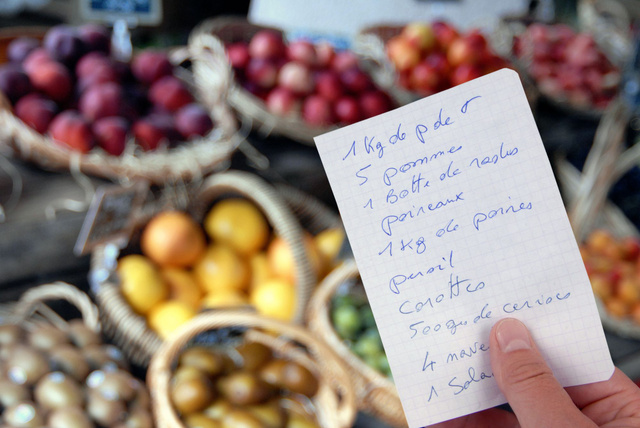 1 Kg de p de T
5 pommes
1 Botte de radis
poireaux
1 Kg de poires
persil
Carottes
500g de cerises
4 nave
1 Sala